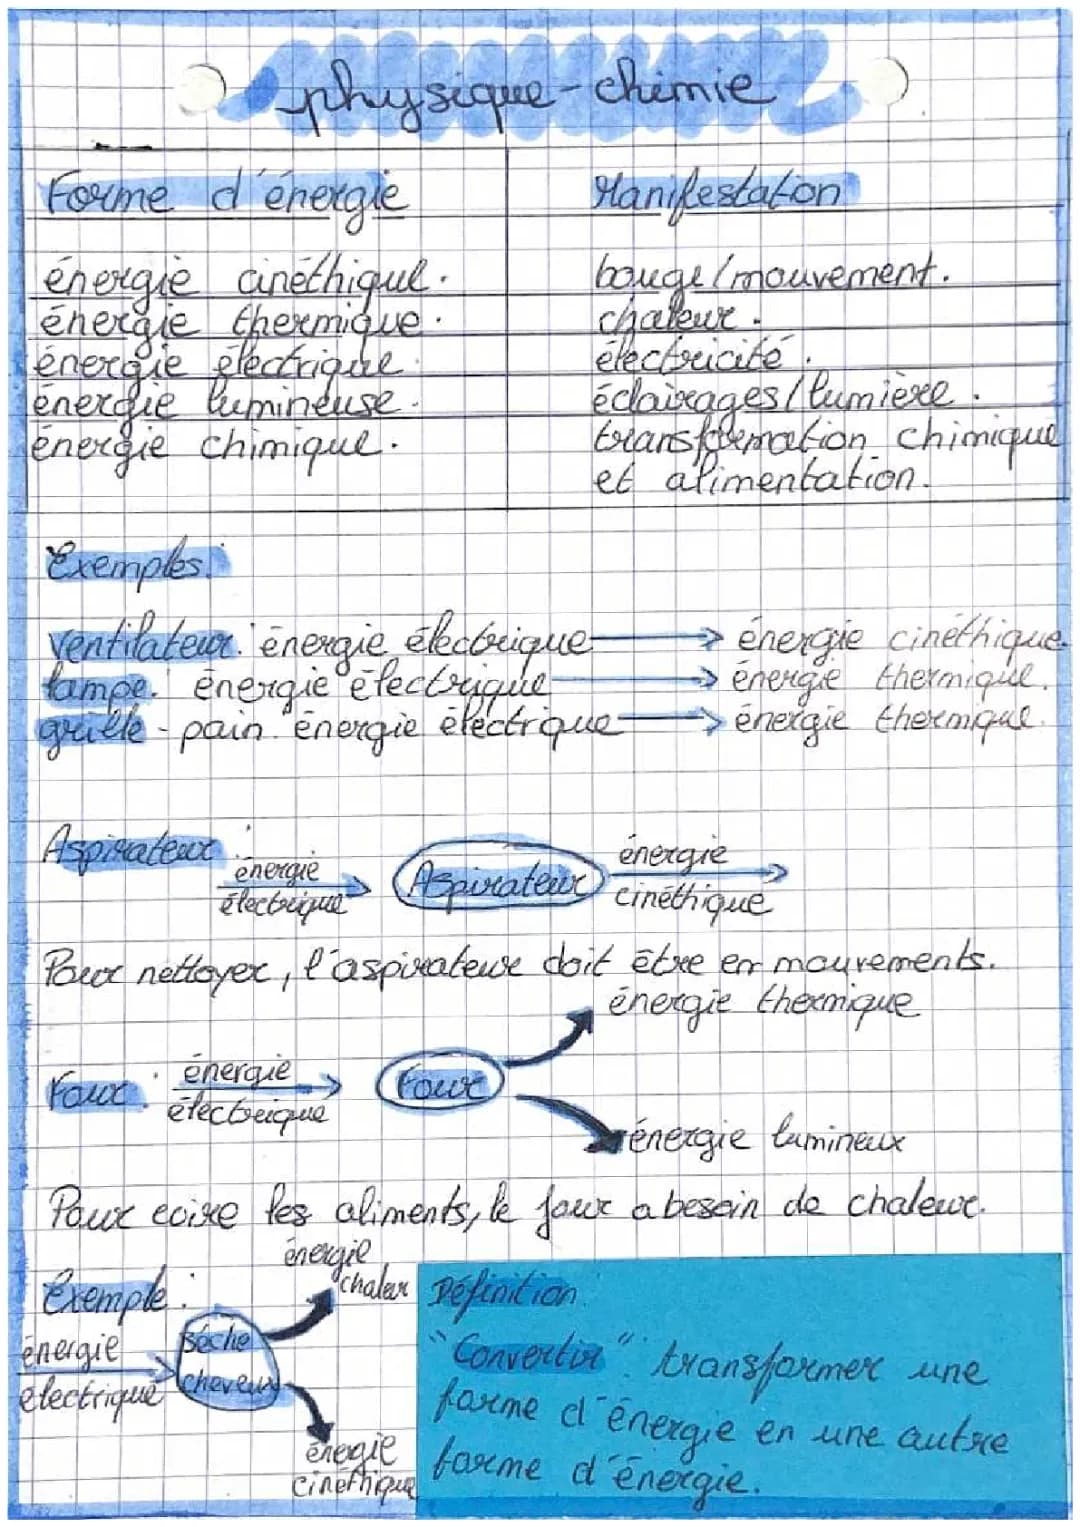 physique-chimie
Forme d'énergie
Manifestation
énergie cinéthique.
bouge/mouvement.
énergie thermique.
chaleur.
énergie électrique.
électricité.
énergie lumineuse.
éclairages/lumière.
énergie chimique.
transformation chimique
et alimentation.
Exemples:
ventilateur: énergie électrique → énergie cinéthique.
lampe: énergie électrique → énergie thermique.
grille-pain: énergie électrique → énergie thermique.
Aspirateur:
énergie
électrique
Aspirateur
énergie
cinéthique
Pour nettoyer, l'aspirateur doit être en mouvements.
énergie thermique
Four:
énergie
électrique
Four
énergie lumineux
Pour coire les aliments, le four a besoin de chaleur.
Exemple:
énergie
électrique
Sèche
cheveux
énergie
chaleur
énergie
cinéthique
Définition
"Convertir": transformer une
forme d'énergie en une autre
forme d'énergie.